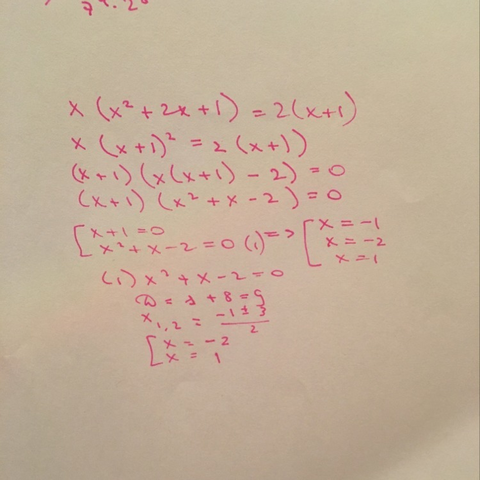 7⁴ · 2
x (x² + 2x + 1) = 2(x+1)
x (x+1)² = 2 (x+1)
(x+1) (x(x+1) - 2) = 0
(x+1) (x² + x - 2) = 0
[ x+1 = 0
x² + x - 2 = 0 (1) => [ x = -1
x = -2
x = 1
(1) x² + x - 2 = 0
D = 1 + 8 = 9
x₁,₂ = (-1 ± 3)/2
[ x = -2
x = 1